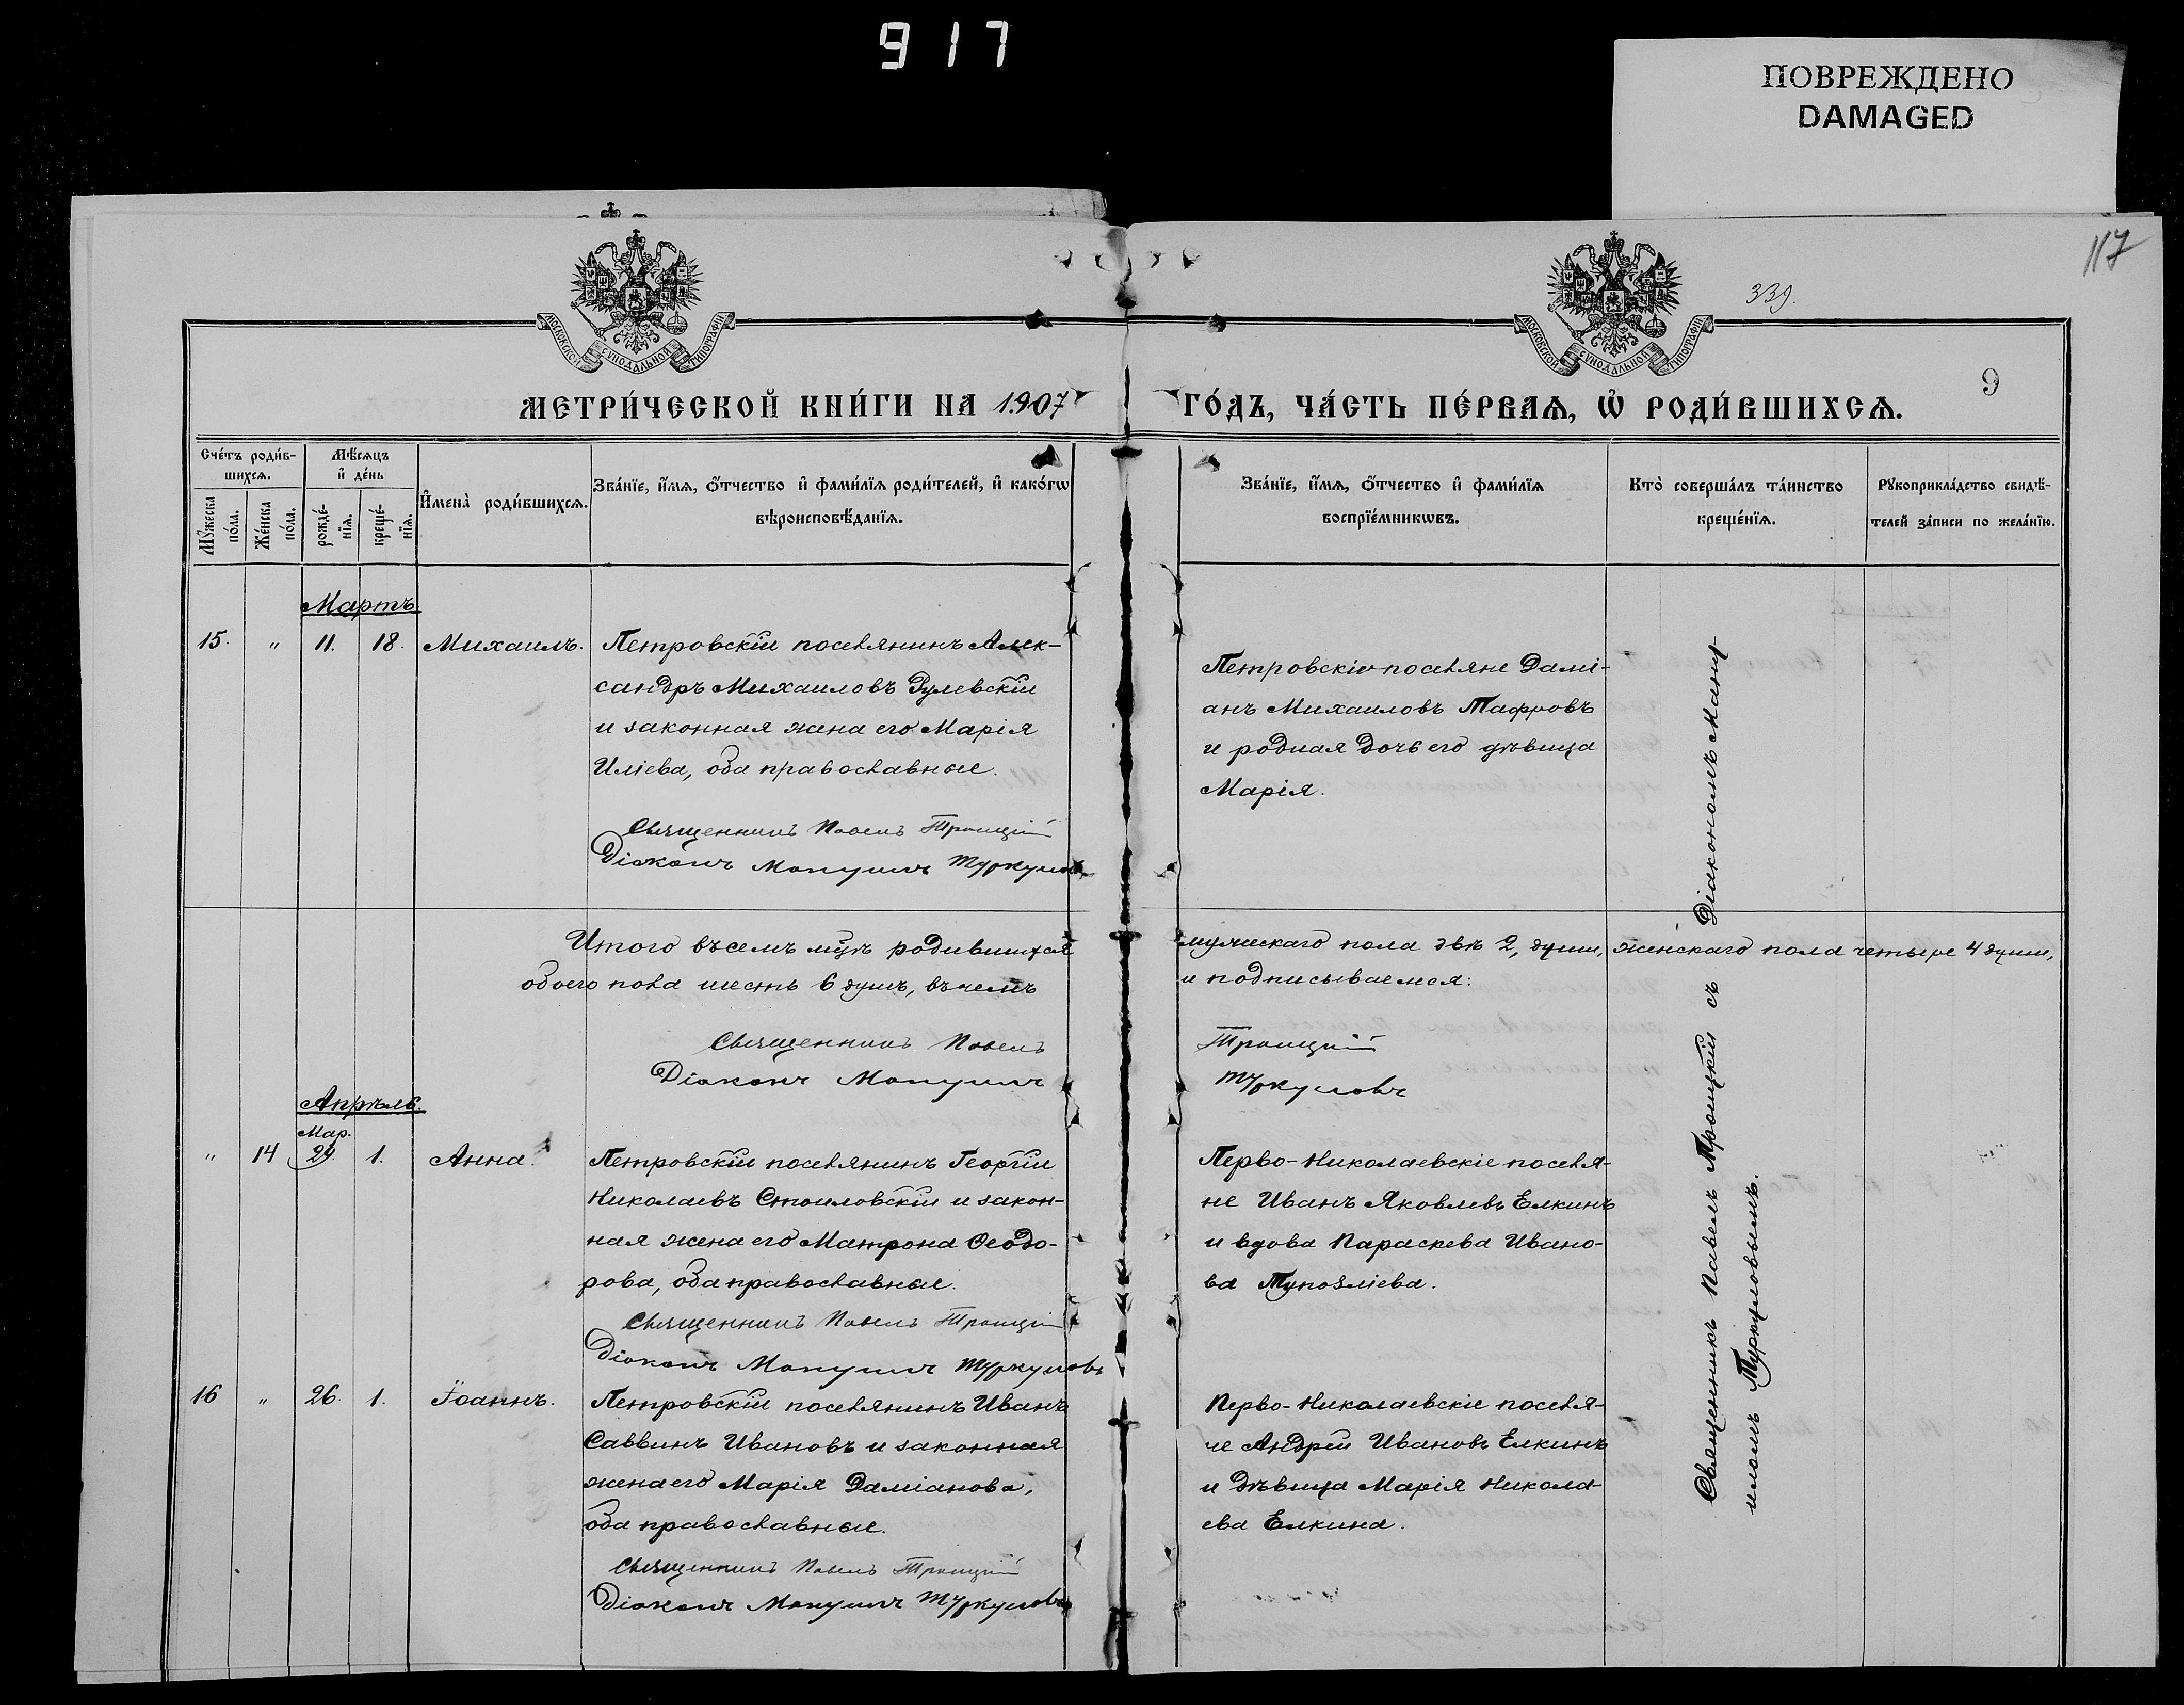 917
ПОВРЕЖДЕНО
DAMAGED
117
339.
9
МОСКОВСКОЙ СѴНОДАЛЬНОЙ ТИПОГРАФІИ
МОСКОВСКОЙ СѴНОДАЛЬНОЙ ТИПОГРАФІИ
МЕТРИ́ЧЕСКОЙ КНИ́ГИ НА 1907
ГО́ДЪ, ЧА́СТЬ ПЕ́РВАѦ, Ѡ҆ РОДИ́ВШИХСѦ.
Сче́тъ роди́в-
шихсѧ.
Мꙋ́жеска по́ла.
Же́нска по́ла.
Мѣ́сѧцъ
и҆ де́нь
рожде́-
нїѧ.
креще́-
нїѧ.
И҆мена̀ роди́вшихсѧ.
Зва́нїе, и҆́мѧ, ѻ҆́тчество и҆ фами́лїѧ роди́телей, и҆ како́гѡ
вѣроисповѣ́данїѧ.
Зва́нїе, и҆́мѧ, ѻ҆́тчество и҆ фами́лїѧ
воспрїе́мникѡвъ.
Кто̀ соверша́лъ та́инство
креще́нїѧ.
Рꙋкоприкла́дство свидѣ́-
телей за́писи по жела́нїю.
Мартъ
15. " 11. 18. Михаилъ.
Петровскій поселянинъ Алек-
сандръ Михаиловъ Гулевскій
и законная жена его Марія
Иліева, оба православные.
Священникъ Павелъ Троицкій
Діаконъ Мануилъ Туркуловъ
Петровскіе поселяне Дамі-
анъ Михаиловъ Тафровъ
и родная дочь его дѣвица
Марія.
Священникъ Павелъ Троицкій съ Діакономъ Ману-
иломъ Туркуловымъ.
Итого въ семъ м-цѣ родившихся
мужескаго пола двѣ 2, души, женскаго пола четыре 4 души,
обоего пола шесть 6 душъ, въ чемъ
и подписываемся:
Священникъ Павелъ
Троицкій
Діаконъ Мануилъ
Туркуловъ
Апрѣль.
Мар.
" 14 29. 1. Анна.
Петровскій поселянинъ Георгій
Николаевъ Стоиловскій и закон-
ная жена его Матрона Ѳеодо-
рова, оба православные.
Священникъ Павелъ Троицкій
Діаконъ Мануилъ Туркуловъ
Перво-Николаевскіе поселя-
не Иванъ Яковлевъ Елкинъ
и вдова Параскева Ивано-
ва Тупозліева.
16 " 26. 1. Іоаннъ.
Петровскій поселянинъ Иванъ
Саввинъ Ивановъ и законная
жена его Марія Даміанова,
оба православные.
Священникъ Павелъ Троицкій
Діаконъ Мануилъ Туркуловъ
Перво-Николаевскіе поселя-
не Андрей Ивановъ Елкинъ
и дѣвица Марія Никола-
ева Елкина.